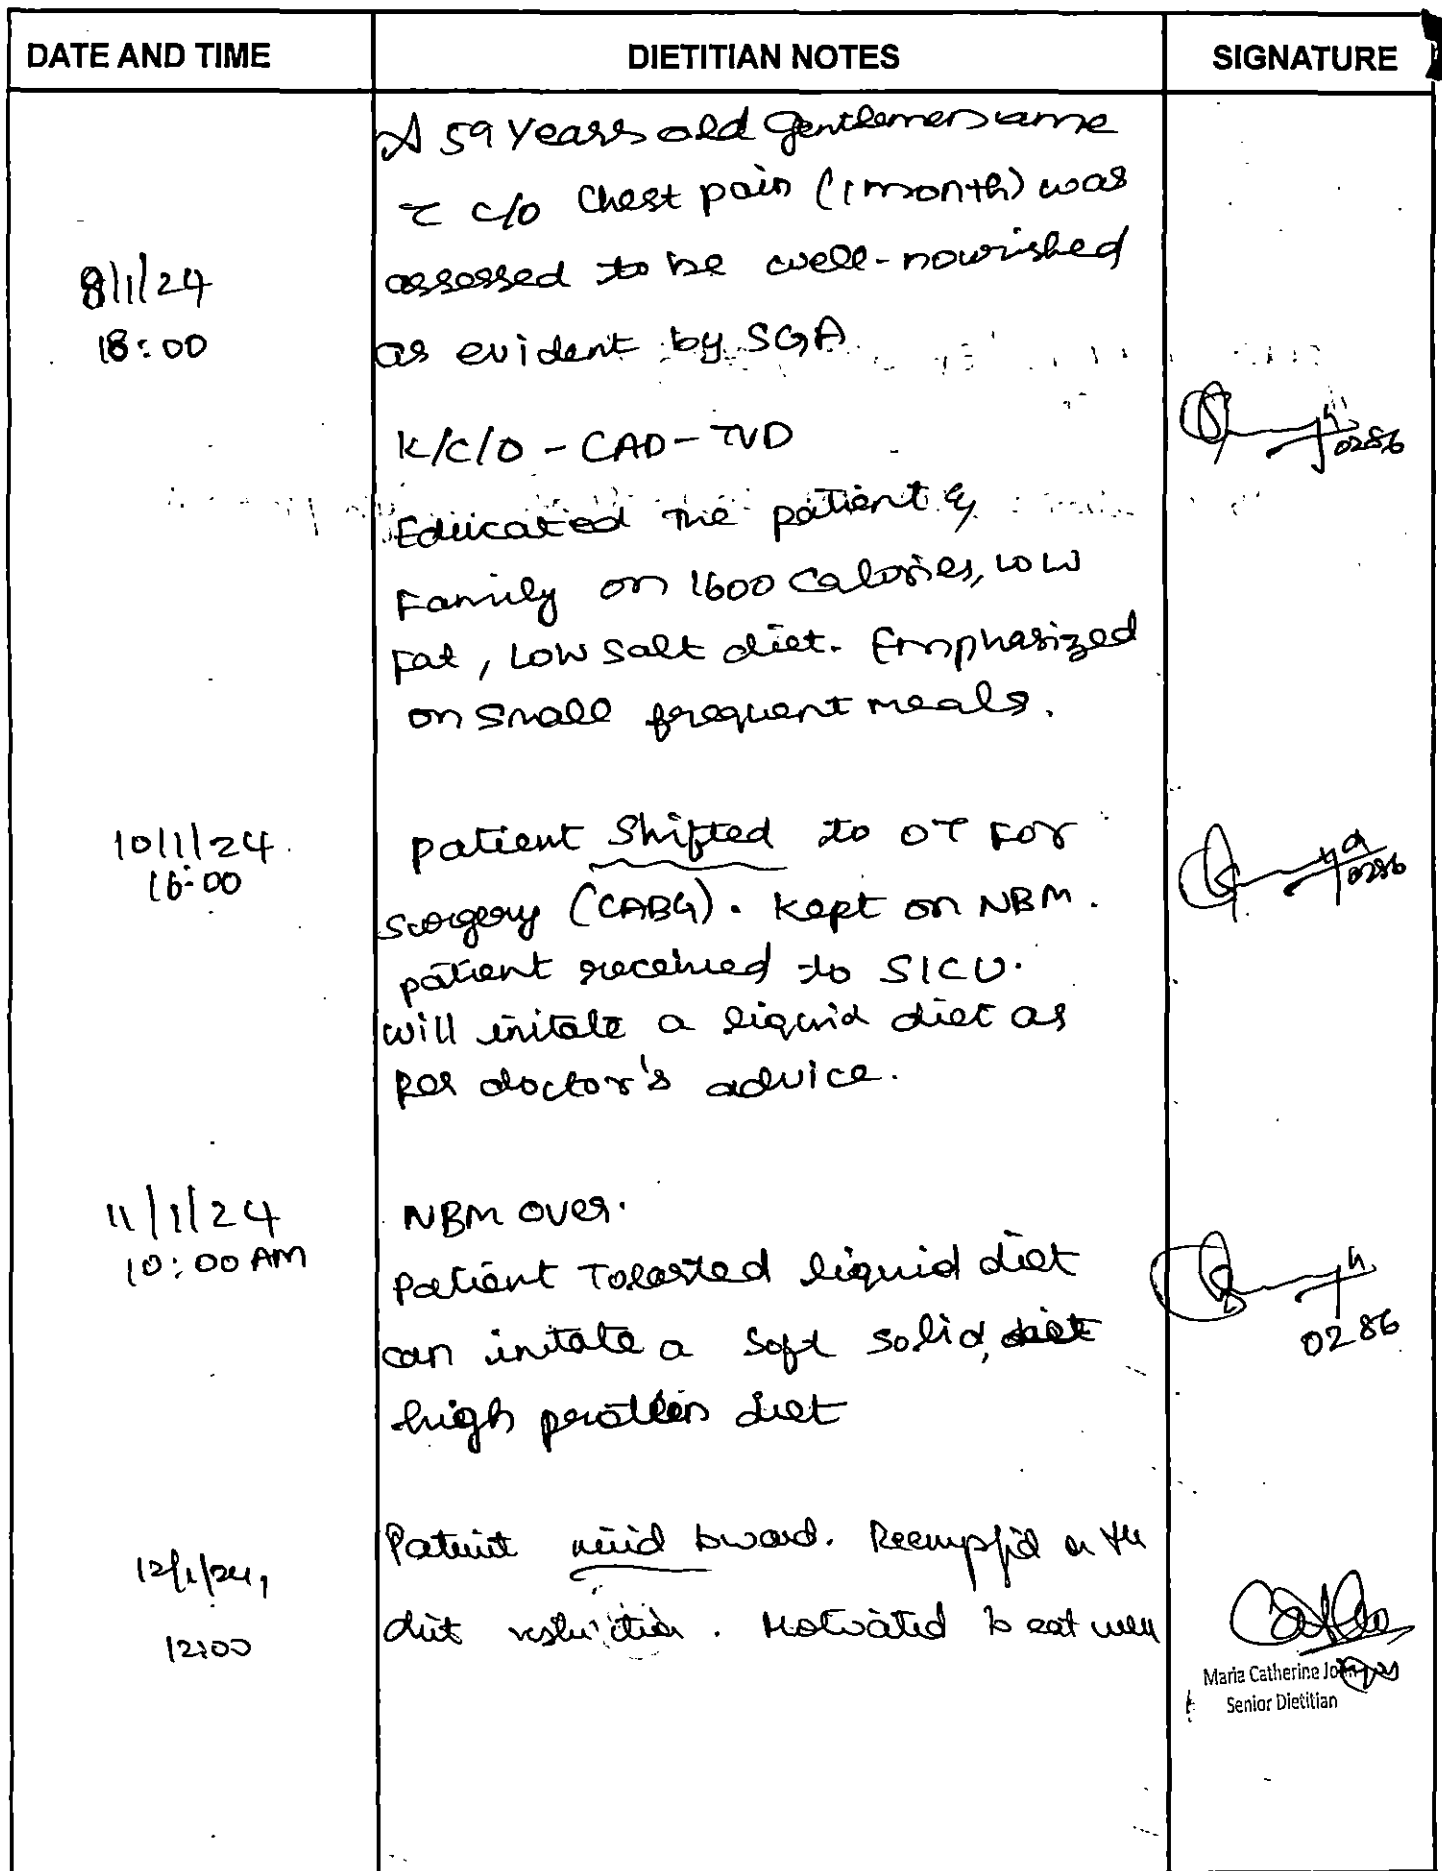 DATE AND TIME
DIETITIAN NOTES
SIGNATURE
A 59 Years old Gentlemen came
c̄ c/o Chest pain (1 month) was
assessed to be well-nourished
8/1/24
18:00
as evident by SGA
K/C/O - CAD - TVD
0286
Educated the patient &
Family on 1600 Calories, Low
Fat, Low salt diet. Emphasized
on small frequent meals.
10/1/24
16:00
patient Shifted to OT For
0286
surgery (CABG). Kept on NBM.
patient received to SICU.
will initate a liquid diet as
per doctor's advice.
11/1/24
10:00 AM
NBM over.
Patient Tolerated liquid diet
can initate a soft solid,
0286
high protein diet
12/1/24,
12:00
Patient ward. on the
diet restriction. Motivated to eat well
Maria Catherine
Senior Dietitian